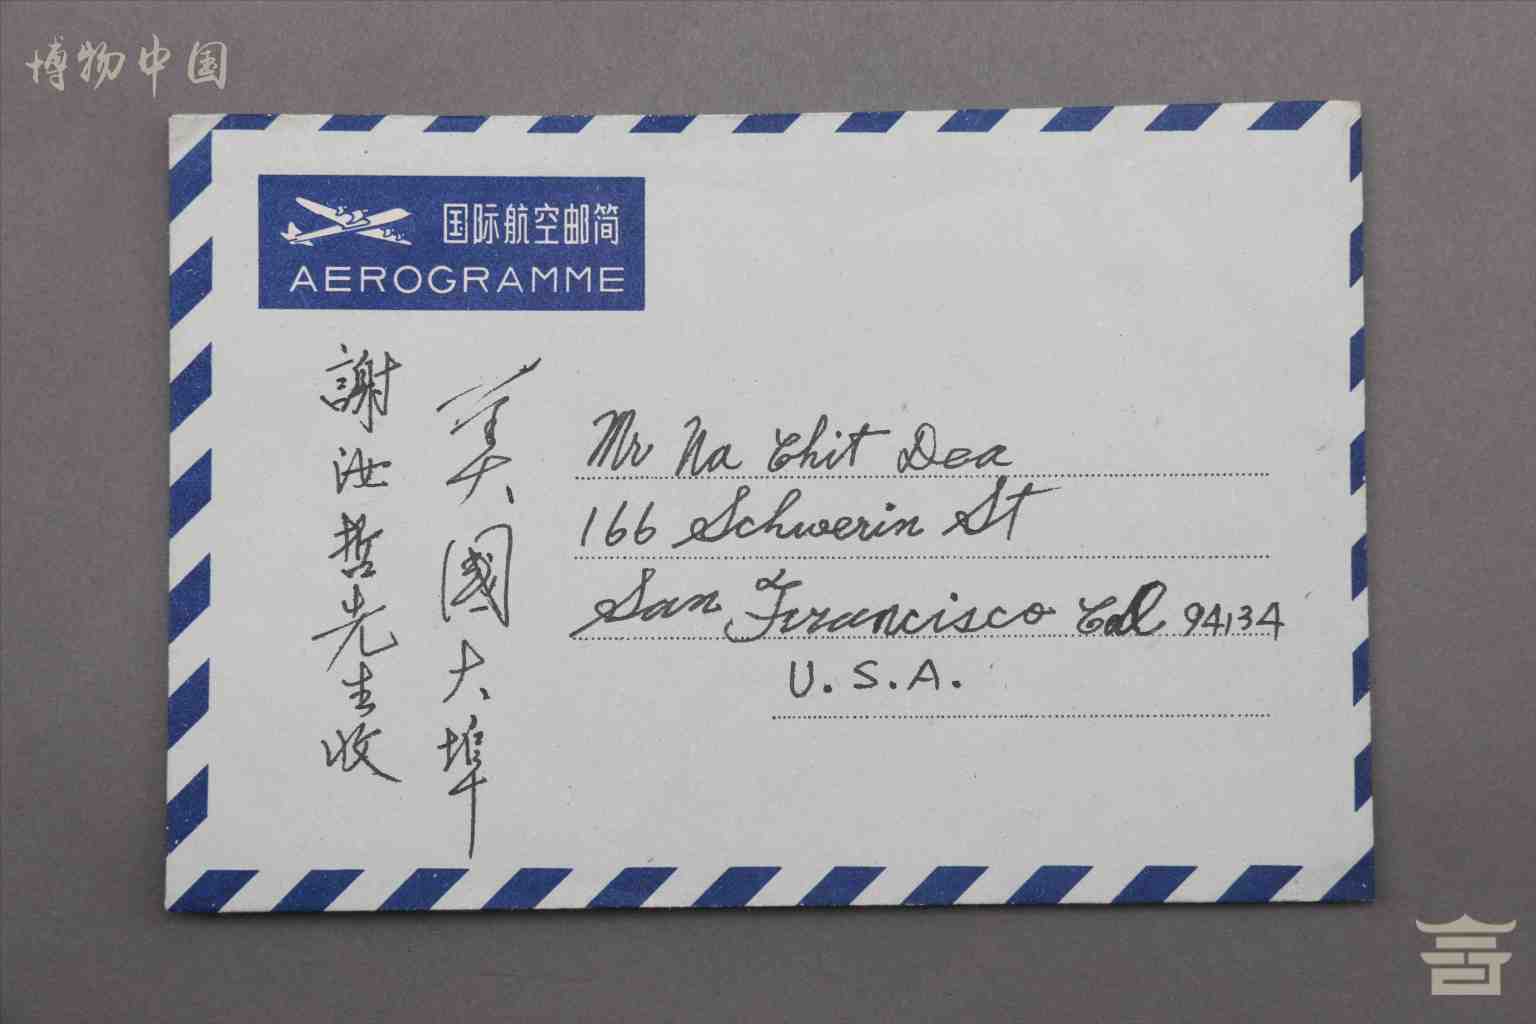 博物中国
国际航空邮简
AEROGRAMME
美國大埠
謝汝哲先生收
Mr Na Chit Dea
166 Schwerin St
San Francisco Cal 94134
U.S.A.